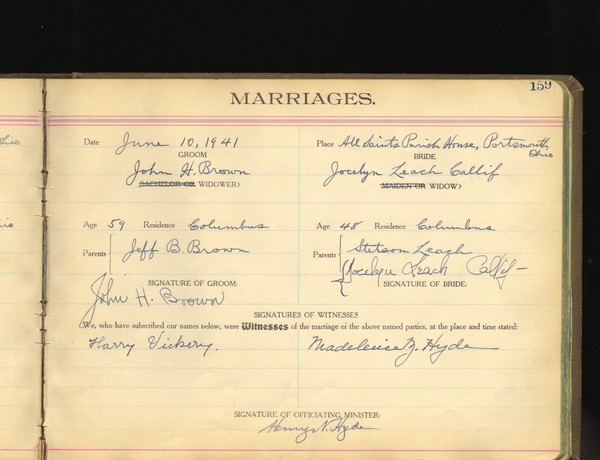 159
MARRIAGES.
Date June 10, 1941 Place All Saints Parish House, Portsmouth
Ohio
GROOM BRIDE
John H. Brown Jocelyn Leach Callif
(BACHELOR OR WIDOWER) (MAIDEN OR WIDOW)
Age 59 Residence Columbus Age 48 Residence Columbus
Parents Jeff B. Brown Parents Stetson Leach
SIGNATURE OF GROOM: Jocelyn Leach Callif
John H. Brown SIGNATURE OF BRIDE:
SIGNATURES OF WITNESSES
(We, who have subscribed our names below, were Witnesses of the marriage of the above named parties, at the place and time stated:
Harry Vickery. Hyde
SIGNATURE OF OFFICIATING MINISTER:
Henry N. Hyde